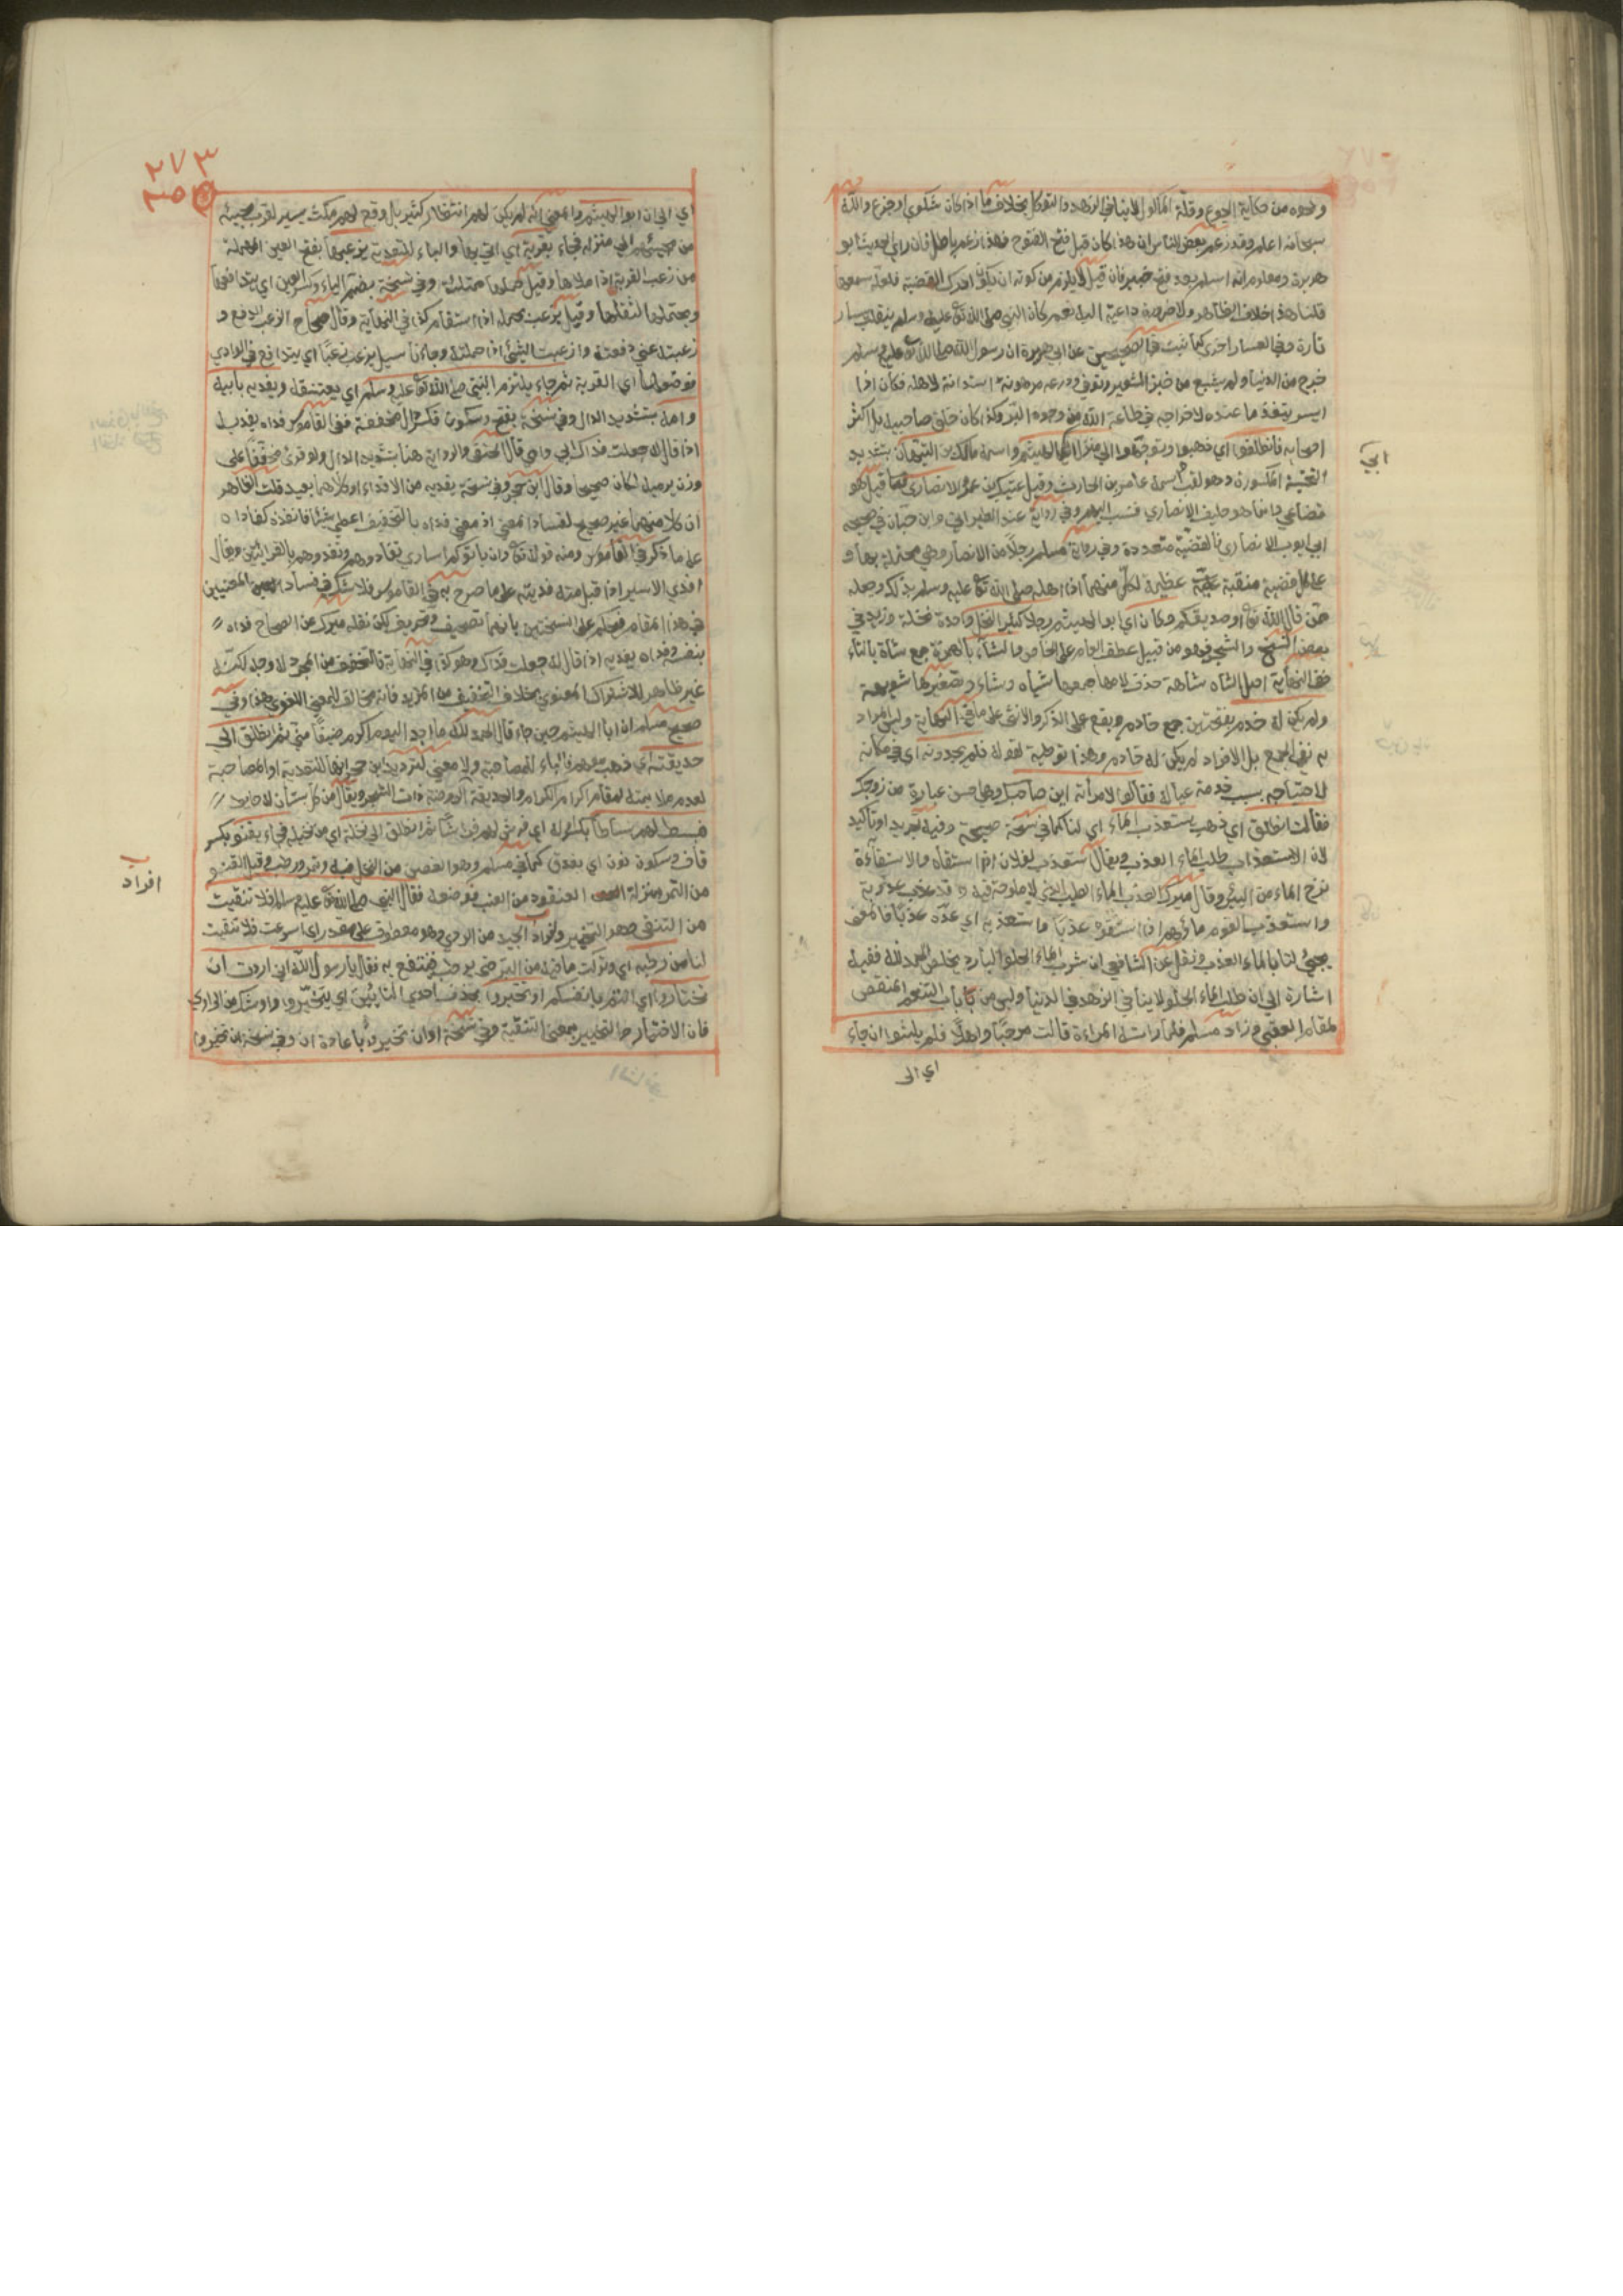 ونحوه من حكاية الجوع وقلة المأكول لا ينافي الزهد والتوكل بخلاف ما اذا كان شكوي او جزع والله
سبحانه اعلم وقد زعم بعض الناس ان هذا كان قبل فتح الفتوح فهذا زعم باطل فان راي الحديث ابو
هريرة ومعلوم انه اسلم بعد فتح خيبر فان قيل لا يلزم من كونه ان يكون ادرك القضية فلعله سمعها
قلنا هذا خلاف الظاهر ولا ضرورة داعية اليه نعم كان النبي صلى الله تع عليه وسلم يتقلب في يسار
تارة وفي العسار اخري كما ثبت في الصحيحين عن ابي هريرة ان رسول الله صلى الله تع عليه وسلم
خرج من الدنيا ولم يشبع من خبز الشعير وتوفي ودرعه مرهونة استدانة لاهله فكان اذا
ايسر ينفذ ما عنده لاخراجه في طاعة الله من وجوه البر وكذا كان خلق صاحبيه بل اكثر
اصحابه فانطلقوا اي فذهبوا وتوجهوا الي منزل ابي الهيثم واسمه مالك بن التيهان بتشديد
التحتية المكسورة وهو لقب اسمه عامر بن الحارث وقيل عتيك بن عمرو الانصاري قيل هو
قضاعي وانما هو حليف الانصاري فنسب اليهم وفي رواية عند الطبراني وابن حبان في صحيحه
ابي ايوب الانصاري فالقضية متعددة وفي رواية مسلم رجلا من الانصار وهي محتملة بهما و
علي كل قضية منقبة عظيمة لكل منهما اذ اهله صلى الله تع عليه وسلم بذلك وجعله
من قال الله تع او صديقكم وكان اي ابو الهيثم رجلا كثير النخل واحدة نخلة وزيد في
بعض النسخ والشجر فهو من قبيل عطف العام على الخاص والشاء بالهمزة جمع شاة بالتاء
ففي النهاية اصل الشاه شاهة حذف لامها جمعها شياه وشاء وتصغيرها شويهة
ولم يكن له خدم بفتحتين جمع خادم ويقع على الذكر والانثى على ما في النهاية وليس المراد
به نفي الجمع بل الافراد لم يكن له خادم وهذا توطية لقوله فلم يجدوه اي في مكانه
لاحتياجه بسبب خدمة عياله فقالوا لامرأته اين صاحبك وهي حسن عبارة من زوجك
فقالت انطلق اي ذهب يستعذب الماء اي لنا كما في نسخة صحيحة وفيه تجريد او تاكيد
لان الاستعذاب طلب الماء العذب ويقال استعذب لفلان اذا استقاه والاستقآءة
نزح الماء من البئر وقال ميرك العذب الماء الطيب الذي لا ملوحة فيه وقد عذب عذوبة
واستعذب القوم ماؤهم اذا استقوه عذبا واستعذبه اي عدّه عذبا فالمعنى
يجيئ لنا بالماء العذب ونقل عن الشافعي ان شرب الماء الحلو البارد يخلص الحمد لله ففيه
اشارة الي ان طلب الماء الحلو لا ينافي الزهد في الدنيا وليس من باب التنعم المنقص
لمقام العقبى وزاد مسلم فلما رات المراءة قالت مرحبا واهلا فلم يلبثوا ان جاء
اي الى
ابي
٢٧٣
اي الي ان ابو الهيثم والمعنى انه لم يكن لهم انتظار كثير بل وقع لهم مكث يسير لقرب مجيئه
من مجيئهم الي منزله فجاء بقربة اي اتي بها والباء للتعدية يزعبها بفتح العين المهملة
من زعب القربة اذا ملاها وقيل حملها ممتلئة وفي نسخة بضم الياء وكسر العين اي يتدافعها
ويحتملها لثقلها وقيل يزعب بحمله اذا استقام كذا في النهاية وقال صحاح الزعب الدفع و
زعبته عني دفعته وازعبت الشئ اذا حملته وجاءنا سيل يزعب زعبا اي يتدافع في الوادي
فوضعها اي القربة ثم جاء يلتزم النبي صلى الله تع عليه وسلم اي يعتنقه ويفديه بابيه
وامه بتشديد الدال وفي نسخة بفتح وسكون فكسر دال مخففة ففي القاموس فداه يفديه
اذا قال له جعلت فداك ابي وامي قال الحنفي والرواية هنا بتشديد الدال ولو قرئ مخففا على
وزن يرميه لكان صحيحا وقال ابن حجر وفي نسخة يفديه من الافداء وكلاهما بعيد قلت الظاهر
ان كلا منهما غير صحيح لفساد المعنى اذ معنى فداه بالتخفيف اعطي شيئا فانقذه كفاداه
على ما ذكر في القاموس ومنه قوله تع وان ياتوكم اساري تفادوهم وتفدوهم بالقراءتين ويقال
افدي الاسير اذا قبل منه فديته على ما صرح به في القاموس فلا شك في فساد المعنيين
في هذا المقام فيحكم على النسختين بانهما تصحيف وتحريف لكن نقله ميرك عن الصحاح فداه
بنفسه وفداه يفديه اذا قال له جعلت فداك وهو كذا في النهاية فالتخفيف من المجرد له وجه لكنه
غير ظاهر للاشتراك المعنوي بخلاف التخفيف من المزيد فانه مخالف للمعنى اللغوي هذا وفي
صحيح مسلم ان ابا الهيثم حين جاء قال الحمد لله ما اجد اليوم اكرم ضيفا مني ثم انطلق الي
حديقته اي ذهب معهم فالباء للمصاحبة ولا معنى لترديد ابن حجر انها للتعدية او المصاحبة
لعدم ملايمته لمقام اكرام الكرام والحديقة الروضة ذات الشجر ويقال من كل بستان له حايط
فبسط لهم بساطا بكسر اوله اي فرش لهم فراشا ثم انطلق الي نخلة اي من نخيله فجاء بقنو بكسر
قاف وسكون نون اي بعذق كما في مسلم وهو الغصن من النخل فيه وتمر ورطب وقيل القنو
من التمر بمنزلة العنقود من العنب فوضعه فقال النبي صلى الله تع عليه وسلم افلا تنقيت
من التنقي وهو التخير وافراد الجيد من الردي وهو معطوف على مقدر اي اسرعت فلا تنقيت
لنا من رطبه اي وتركت ما فيه من البسر حتى يرطب فننتفع به فقال يا رسول الله اني اردت ان
تختاروا اي انتم بانفسكم او تخيروا بحذف احدي التائين اي يتخيروا واو شك من الراوي
فان الاختيار والتخيير بمعنى التنقية وفي نسخة او ان تخيروا باعادة ان وفي نسخة ان تخيروا
افراد